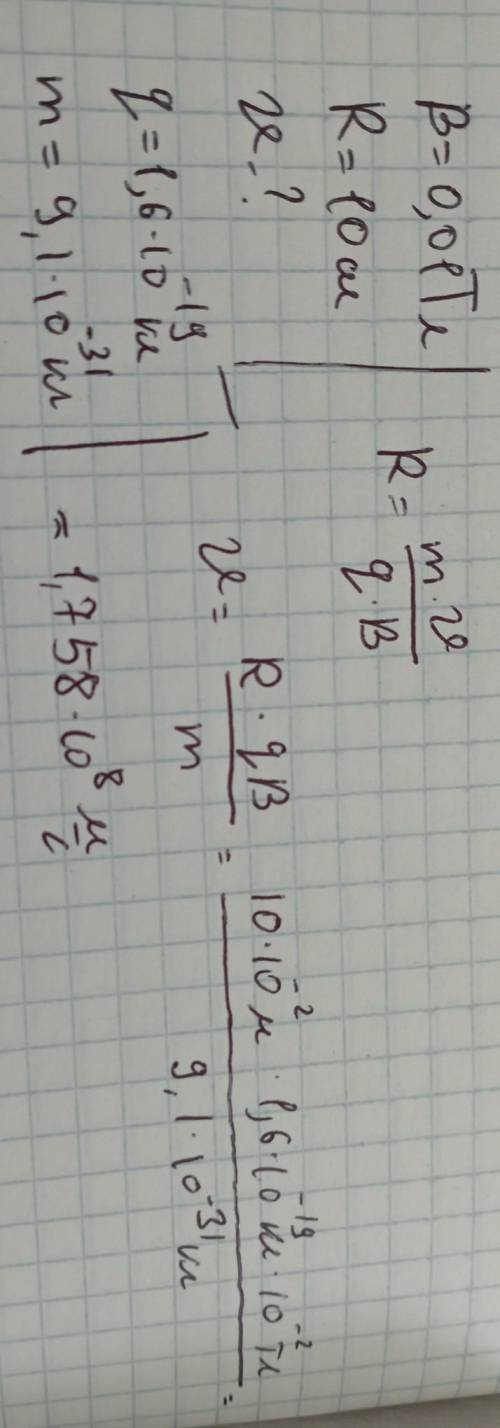 B = 0,01 Тл
R = 10 см
v - ?
q = 1,6·10⁻¹⁹ кл
m = 9,1·10⁻³¹ кг
R = m·v / q·B
v = R·qB / m = 10·10⁻² м · 1,6·10⁻¹⁹ кл · 10⁻² Тл / 9,1·10⁻³¹ кг =
= 1,758·10⁸ м/с